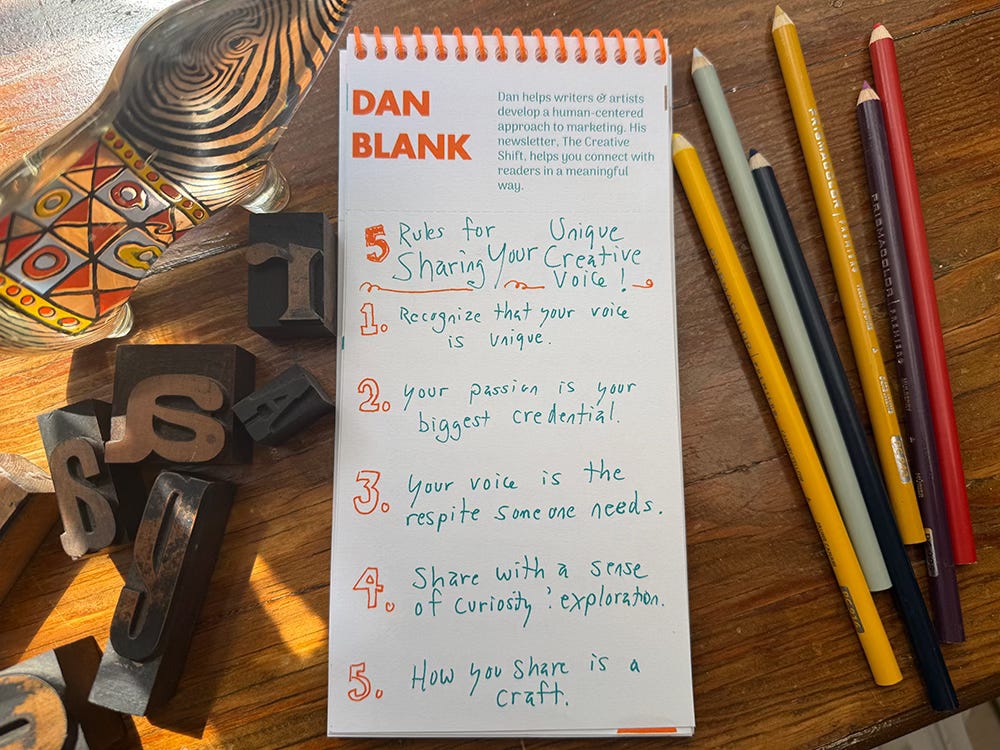 DAN
BLANK
Dan helps writers & artists
develop a human-centered
approach to marketing. His
newsletter, The Creative
Shift, helps you connect with
readers in a meaningful
way.
5 Rules for Unique
Sharing Your Creative
Voice!
1. Recognize that your voice
is unique.
2. your passion is your
biggest credential.
3. your voice is the
respite someone needs.
4. Share with a sense
of curiosity : exploration.
5. How you share is a
craft.
PRISMACOLOR
PRISMACOLOR | PREMIER